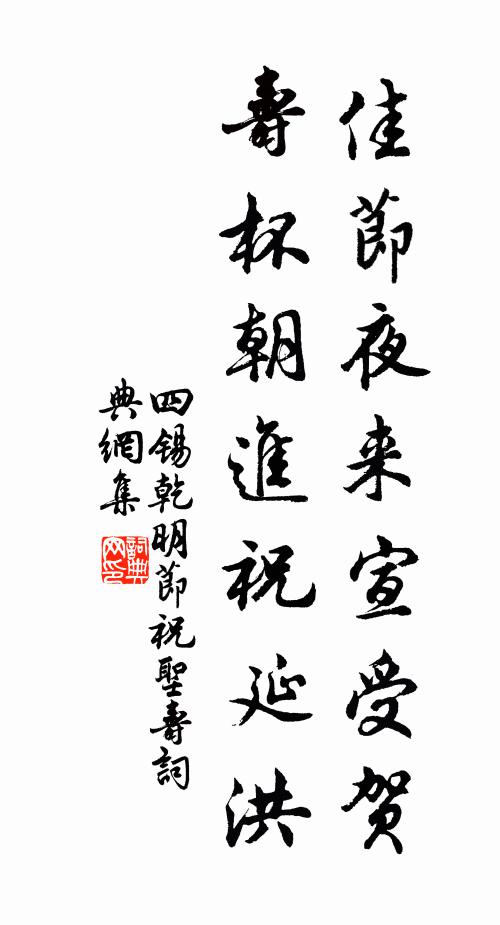 佳節夜来宣受賀
壽杯朝進祝延洪
四锡乾明節祝聖壽詞
典網集
詞典
网